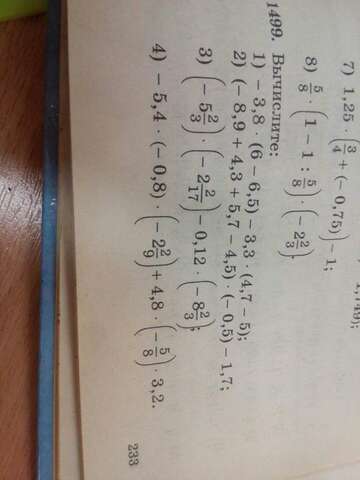 1,49);
7) 1,25 · (3/4 + (− 0,75)) − 1;
8) 5/8 · (1 − 1 : 5/8) · (− 2 2/3).
1499. Вычислите:
1) − 3,8 · (6 − 6,5) − 3,3 · (4,7 − 5);
2) (− 8,9 + 4,3 + 5,7 − 4,5) · (− 0,5) − 1,7;
3) (− 5 2/3) · (− 2 2/17) − 0,12 · (− 8 2/3);
4) − 5,4 · (− 0,8) · (− 2 2/9) + 4,8 · (− 5/8) · 3,2.
233